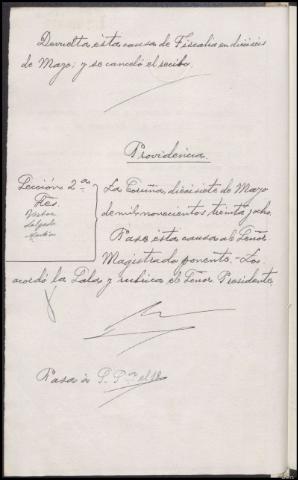 Devuelta esta causa de Fiscalía en dieciseis
de Mayo; y se canceló el recibo.
Providencia.
Sección 2ª
Sres.
Salgado
La Coruña, diecisiete de Mayo
de mil novecientos treinta y ocho.
Pase esta causa al Señor
Magistrado ponente.- Lo
acordó la Sala y rubrica el Señor Presidente
Pasa á